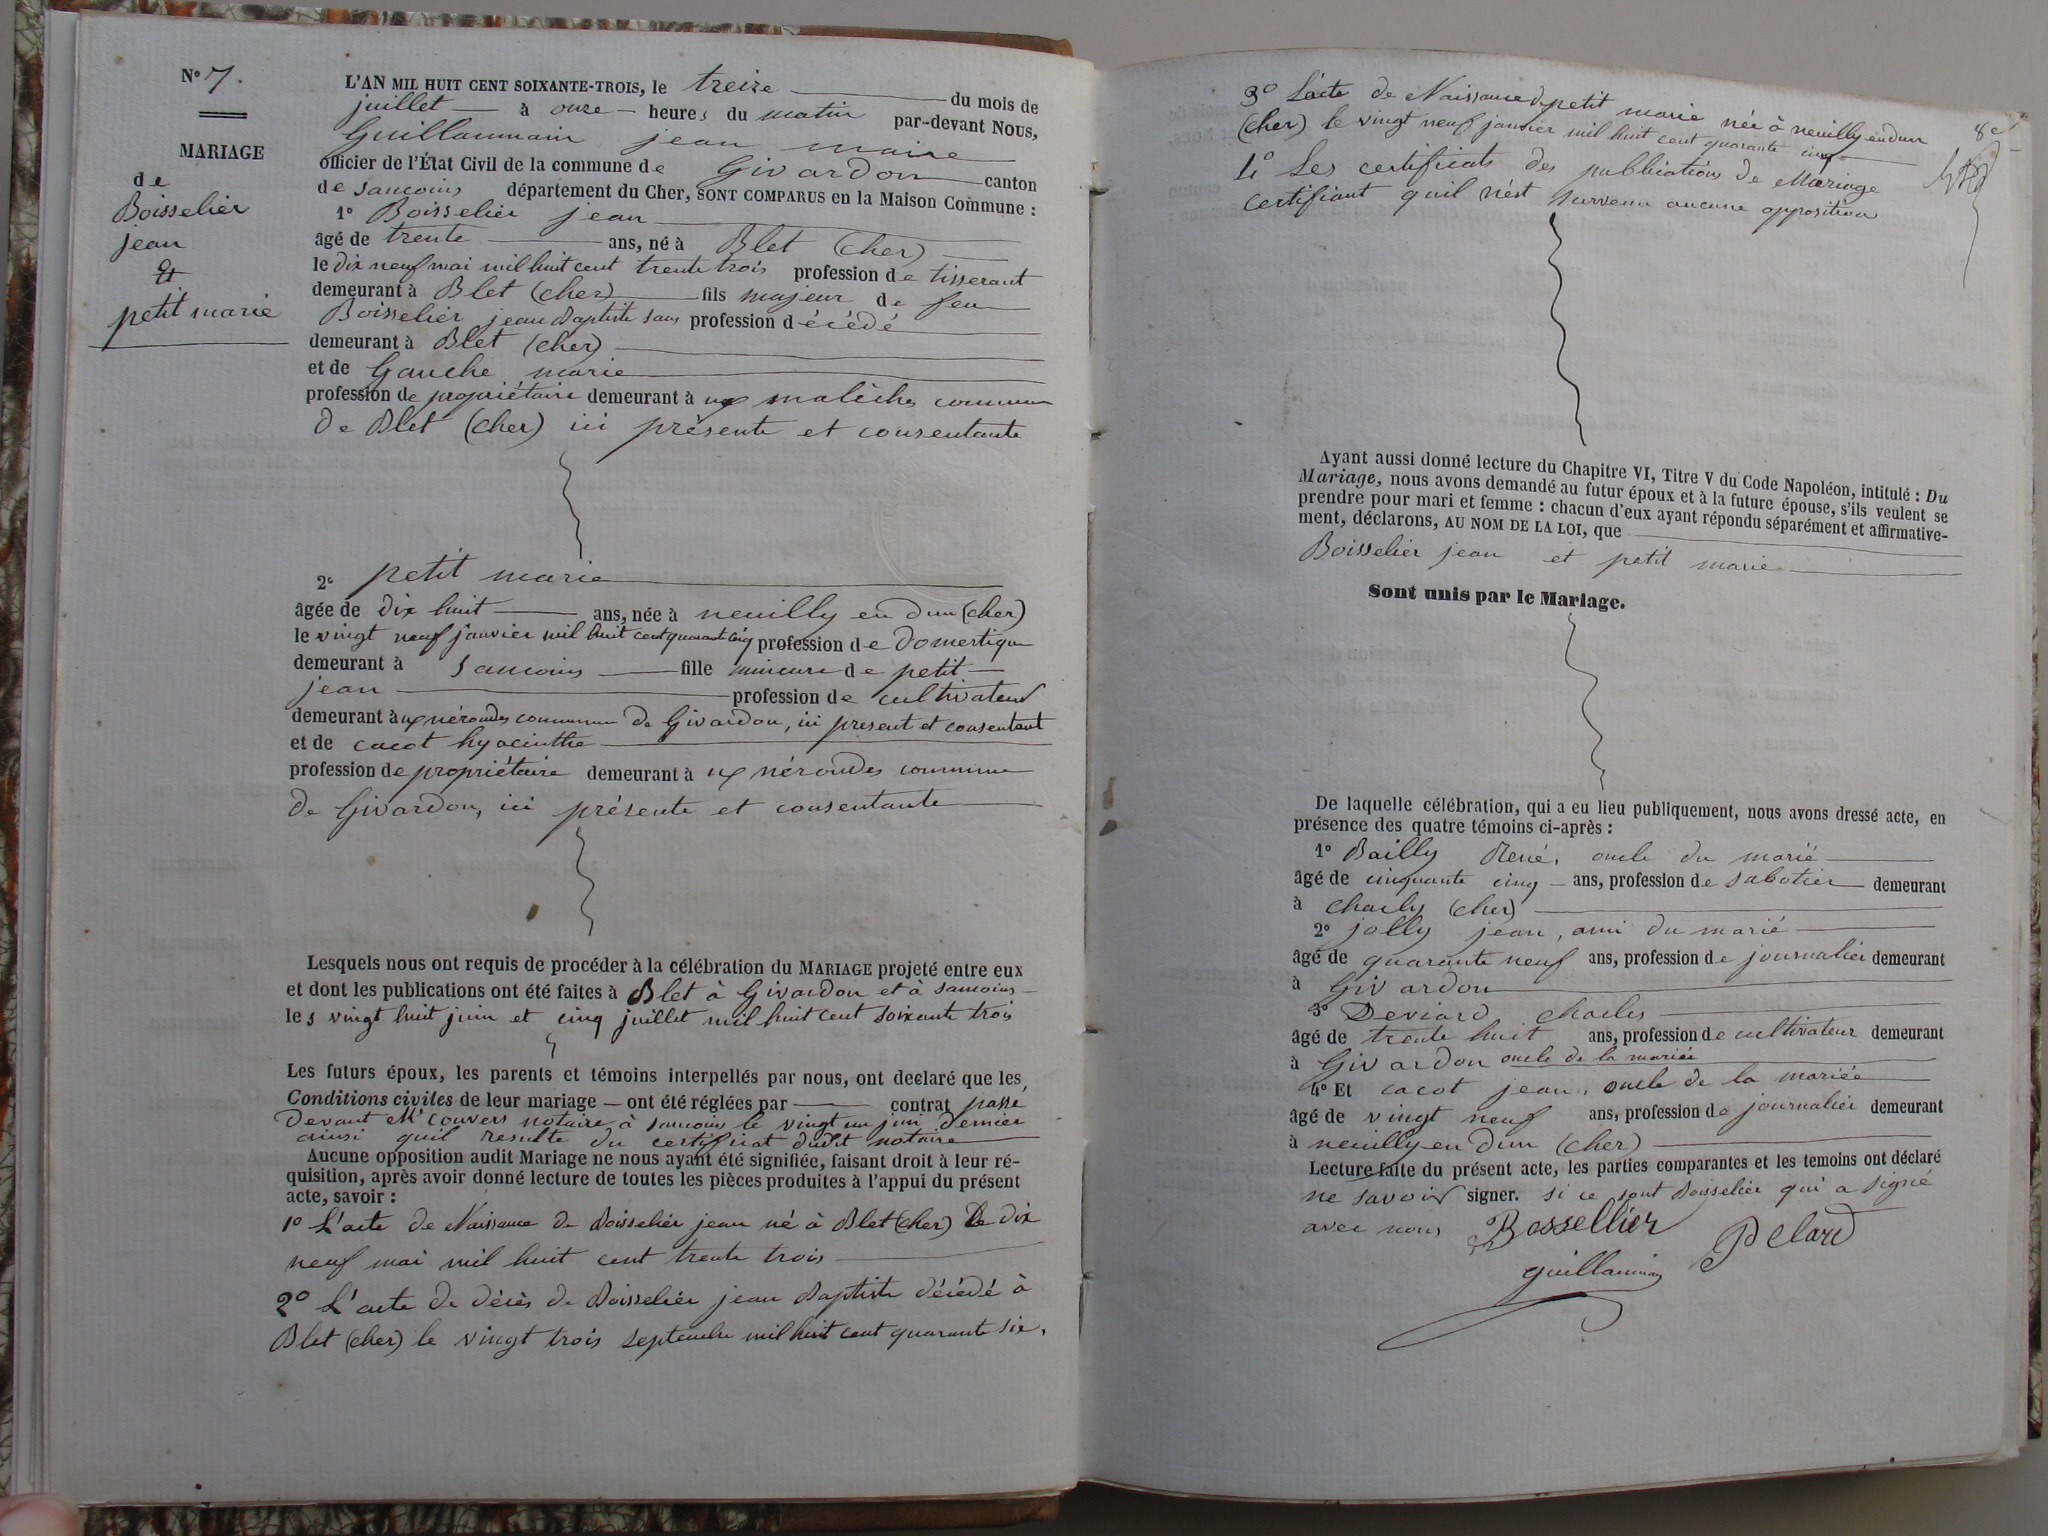 N° 7.
MARIAGE
de
Boisselier
jean
Et
petit marie
L'AN MIL HUIT CENT SOIXANTE-TROIS, le treize du mois de
juillet à onze heures du matin par-devant NOUS,
Guillaumain jean maire
officier de l'État Civil de la commune de Givardon canton
de sancoins département du Cher, SONT COMPARUS en la Maison Commune :
1° Boisselier jean
âgé de trente ans, né à Blet (cher)
le dix neuf mai mil huit cent trente trois profession de tisserant
demeurant à Blet (cher) fils majeur de feu
Boisselier jean Baptiste sans profession décédé
demeurant à Blet (cher)
et de Gauche marie
profession de propriétaire demeurant à ux malèches commune
de Blet (cher) ici présente et consentante
2° petit marie
âgée de dix huit ans, née à neuilly en dun (cher)
le vingt neuf janvier mil huit cent quarante cinq profession de domestique
demeurant à Sancoins fille mineure de petit
jean profession de cultivateur
demeurant à ux nérondes commune de Givardon, ici present et consentant
et de cacot hyacinthe
profession de propriétaire demeurant à ux nérondes commune
de Givardon, ici présente et consentante
Lesquels nous ont requis de procéder à la célébration du MARIAGE projeté entre eux
et dont les publications ont été faites à Blet à Givardon et à sancoins
les vingt huit juin et cinq juillet mil huit cent soixante trois
Les futurs époux, les parents et témoins interpellés par nous, ont declaré que les
Conditions civiles de leur mariage — ont été réglées par contrat passé
devant Mr couvers notaire à sancoins le vingt un juin dernier
ainsi quil resulte du certificat dudit notaire
Aucune opposition audit Mariage ne nous ayant été signifiée, faisant droit à leur ré-
quisition, après avoir donné lecture de toutes les pièces produites à l'appui du présent
acte, savoir :
1° L'acte de Naissance de Boisselier jean né à Blet (cher) Le dix
neuf mai mil huit cent trente trois
2° L'acte de décès de Boisselier jean Baptiste décédé à
Blet (cher) le vingt trois septembre mil huit cent quarante six.
3° L'acte de Naissance de petit marie née à neuilly en dun
(cher) le vingt neuf janvier mil huit cent quarante cinq
4° Les certificats des publications de Mariage
certifiant quil n'est survenu aucune opposition
8e
Ayant aussi donné lecture du Chapitre VI, Titre V du Code Napoléon, intitulé : Du
Mariage, nous avons demandé au futur époux et à la future épouse, s'ils veulent se
prendre pour mari et femme : chacun d'eux ayant répondu séparément et affirmative-
ment, déclarons, AU NOM DE LA LOI, que
Boisselier jean et petit marie
Sont unis par le Mariage.
De laquelle célébration, qui a eu lieu publiquement, nous avons dressé acte, en
présence des quatre témoins ci-après :
1° Bailly René, oncle du marié
âgé de cinquante cinq ans, profession de sabotier demeurant
à charly (cher)
2° jolly jean, ami du marié
âgé de quarante neuf ans, profession de journalier demeurant
à Givardon
3° Deviard charles
âgé de trente huit ans, profession de cultivateur demeurant
à Givardon oncle de la mariée
4° Et cacot jean, oncle de la mariée
âgé de vingt neuf ans, profession de journalier demeurant
à neuilly en dun (cher)
Lecture faite du présent acte, les parties comparantes et les temoins ont déclaré
ne savoir signer. si ce sont Boisselier qui a signé
avec nous Bossellier
guillaumain